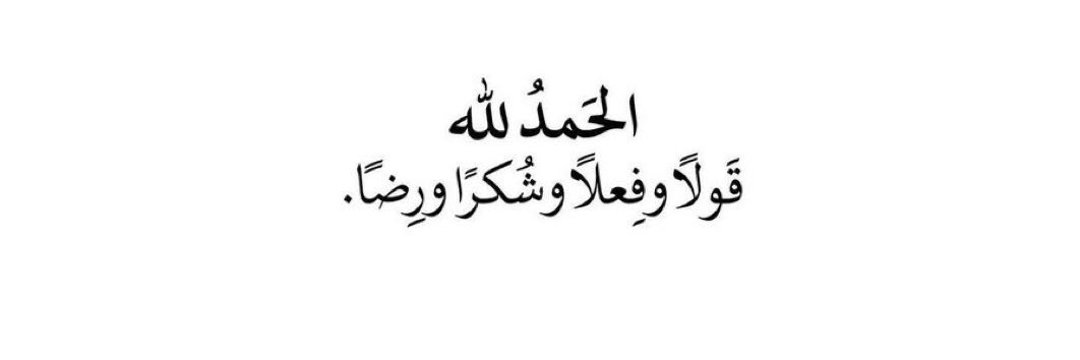 الحَمدُ لله
قَولاً وفِعلاً وشُكرًا ورِضًا.